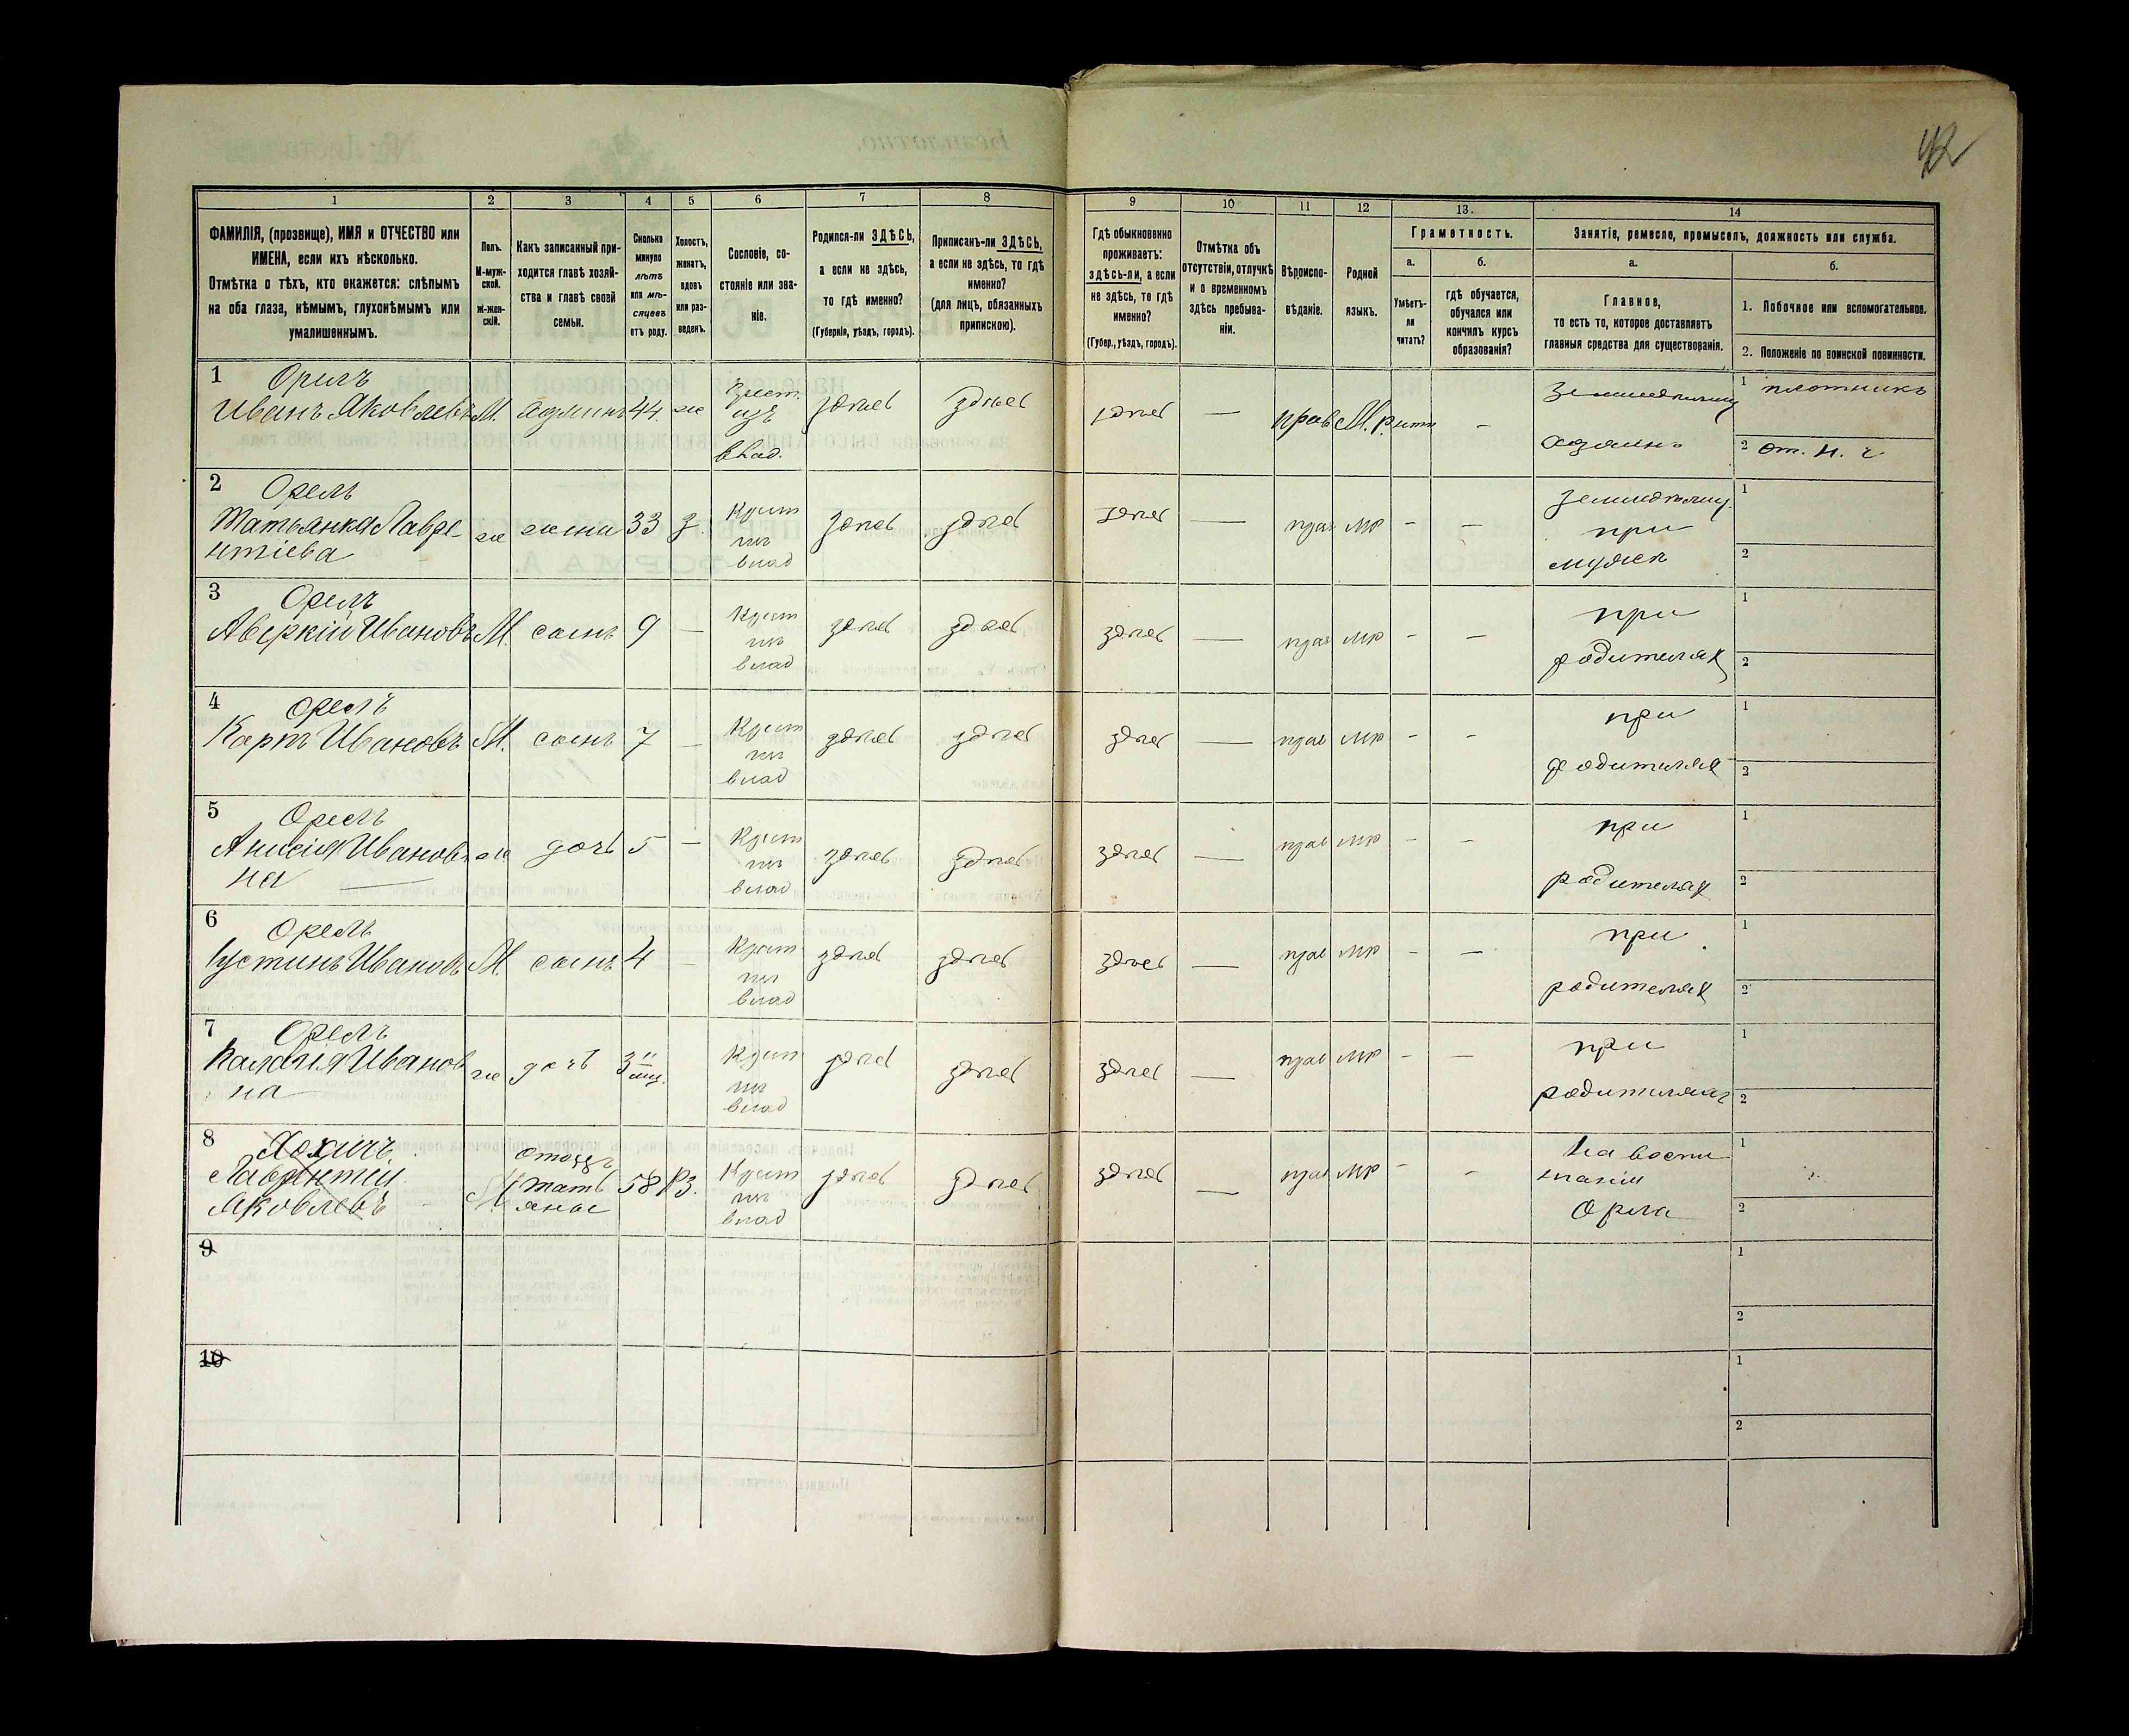 42
1 2 3 4 5 6 7 8 9 10 11 12 13. 14
ФАМИЛІЯ, (прозвище), ИМЯ и ОТЧЕСТВО или
ИМЕНА, если ихъ нѣсколько.
Отмѣтка о тѣхъ, кто окажется: слѣпымъ
на оба глаза, нѣмымъ, глухонѣмымъ или
умалишеннымъ.
Полъ.
М-муж-
ской.
ж-жен-
скій.
Какъ записанный при-
ходится главѣ хозяй-
ства и главѣ своей
семьи.
Сколько
минуло
лѣтъ
или мѣ-
сяцевъ
отъ роду.
Холостъ,
женатъ,
вдовъ
или раз-
веденъ.
Сословіе, со-
стояніе или зва-
ніе.
Родился-ли ЗДѢСЬ,
а если не здѣсь,
то гдѣ именно?
(Губернія, уѣздъ, городъ).
Приписанъ-ли ЗДѢСЬ,
а если не здѣсь, то гдѣ
именно?
(для лицъ, обязанныхъ
припискою).
Гдѣ обыкновенно
проживаетъ:
здѣсь-ли, а если
не здѣсь, то гдѣ
именно?
(Губер., уѣздъ, городъ).
Отмѣтка объ
отсутствіи, отлучкѣ
и о временномъ
здѣсь пребыва-
ніи.
Вѣроиспо-
вѣданіе.
Родной
языкъ.
Грамотность.
а.
Умѣетъ-
ли
читать?
б.
гдѣ обучается,
обучался или
кончилъ курсъ
образованія?
Занятіе, ремесло, промыселъ, должность или служба.
а.
Главное,
то есть то, которое доставляетъ
главныя средства для существованія.
б.
1. Побочное или вспомогательное.
2. Положеніе по воинской повинности.
1 Орелъ
Иванъ Яковлевъ М. 44 ж здѣсь здѣсь здѣсь — прав М.р. –
влад.
1 плотникъ
2 от. н. ч
2 Орелъ
Татьянка Лавре-
нтіева ж жена 33 З. Крест
влад здѣсь здѣсь здѣсь — прав мр – –
при
мужѣ
1
2
3 Орелъ
Аверкій Ивановъ М. сынъ 9 — Крест
влад здѣсь здѣсь здѣсь — прав мр – –
при
родителях
1
2
4 Орелъ
Карпъ Ивановъ М. сынъ 7 — Крест
влад здѣсь здѣсь здѣсь — прав мр – –
при
родителях
1
2
5 Орелъ
Анисія Иванов-
на ж дочь 5 — Крест
влад здѣсь здѣсь здѣсь — прав мр – –
при
родителях
1
2
6 Орелъ
Іустинъ Ивановъ М. сынъ 4 — Крест
влад здѣсь здѣсь здѣсь — прав мр – –
при
родителях
1
2
7 Орелъ
Иванов
на ж дочь 3 мц. Крест
влад здѣсь здѣсь здѣсь — прав мр – –
при
родителях
1
2
8
Лаврентій
Яковлевъ отецъ
Тать
яны 58 Крест
влад здѣсь здѣсь здѣсь — прав мр – –
На воспи
таніи
Орла
1
2
9
1
2
10
1
2